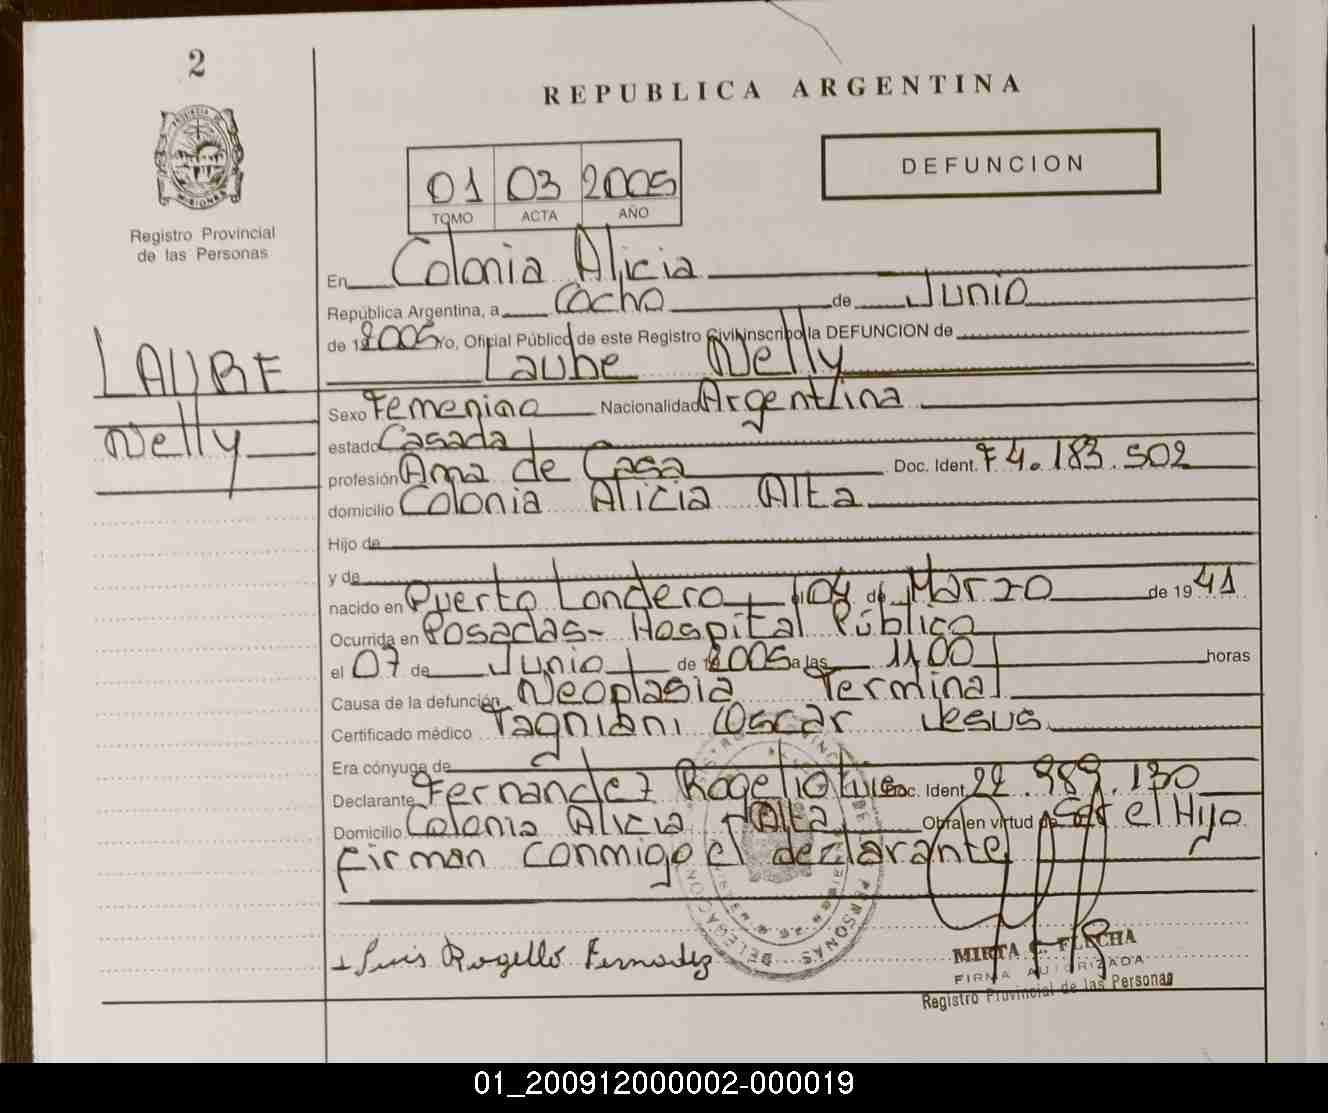 2
REPUBLICA ARGENTINA
PROVINCIA DE MISIONES
Registro Provincial
de las Personas
01 03 2005
TOMO ACTA AÑO
DEFUNCION
En Colonia Alicia
República Argentina, a Ocho de Junio
de 2005 yo, Oficial Público de este Registro Civil inscribo la DEFUNCION de
LAUBE
Nelly
Laube Nelly
Sexo Femenino Nacionalidad Argentina
estado Casada
profesión Ama de Casa Doc. Ident. F 4.183.502
domicilio Colonia Alicia Alta
Hijo de
y de
nacido en Puerto Londero el 04 de Marzo de 1941
Ocurrida en Posadas- Hospital Público
el 07 de Junio de 2005 a las 11,00 horas
Causa de la defunción Neoplasia Terminal
Certificado médico Tagniani Oscar Jesus
Era cónyuge de
Declarante Fernandez Rogelio Luis Doc. Ident. 22.989.130
Domicilio Colonia Alicia Alta Obra en virtud de Ser el Hijo
Firman conmigo el declarante
Luis Rogelio Fernandez
MIRTA FLECHA
FIRMA AUTORIZADA
Registro Provincial de las Personas
01_200912000002-000019